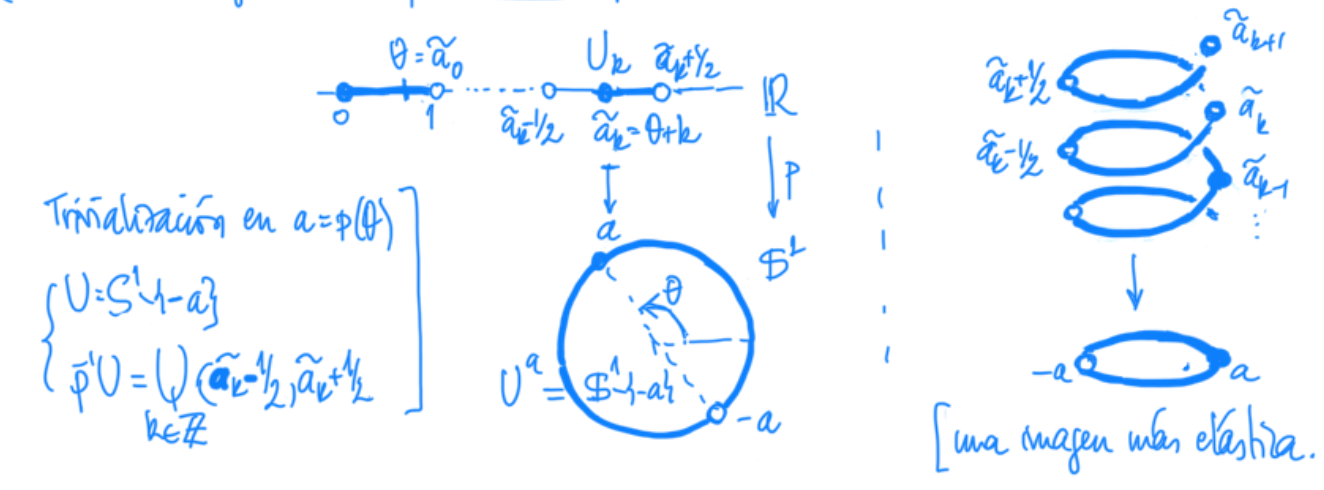 θ = ã₀
U_k
ã_k+1/2
ℝ
0
1
ã_k-1/2
ã_k = θ+k
p
a
𝕊¹
Trivialización en a = p(θ)
U = S¹∖{-a}
p⁻¹U = ⋃ (ã_k-1/2, ã_k+1/2
k∈ℤ
θ
Uᵃ = 𝕊¹∖{-a}
-a
ã_k+1
ã_k+1/2
ã_k
ã_k-1/2
ã_k-1
-a
a
[una imagen más elástica.